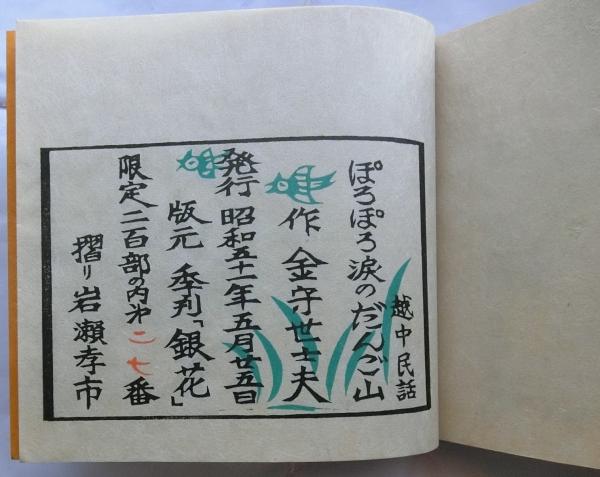 越中民話
ぽろぽろ涙のだんご山
作 金守世士夫
発行 昭和五十一年五月廿五日
版元 季刊「銀花」
限定二百部の内第二七番
摺り 岩瀬孝市